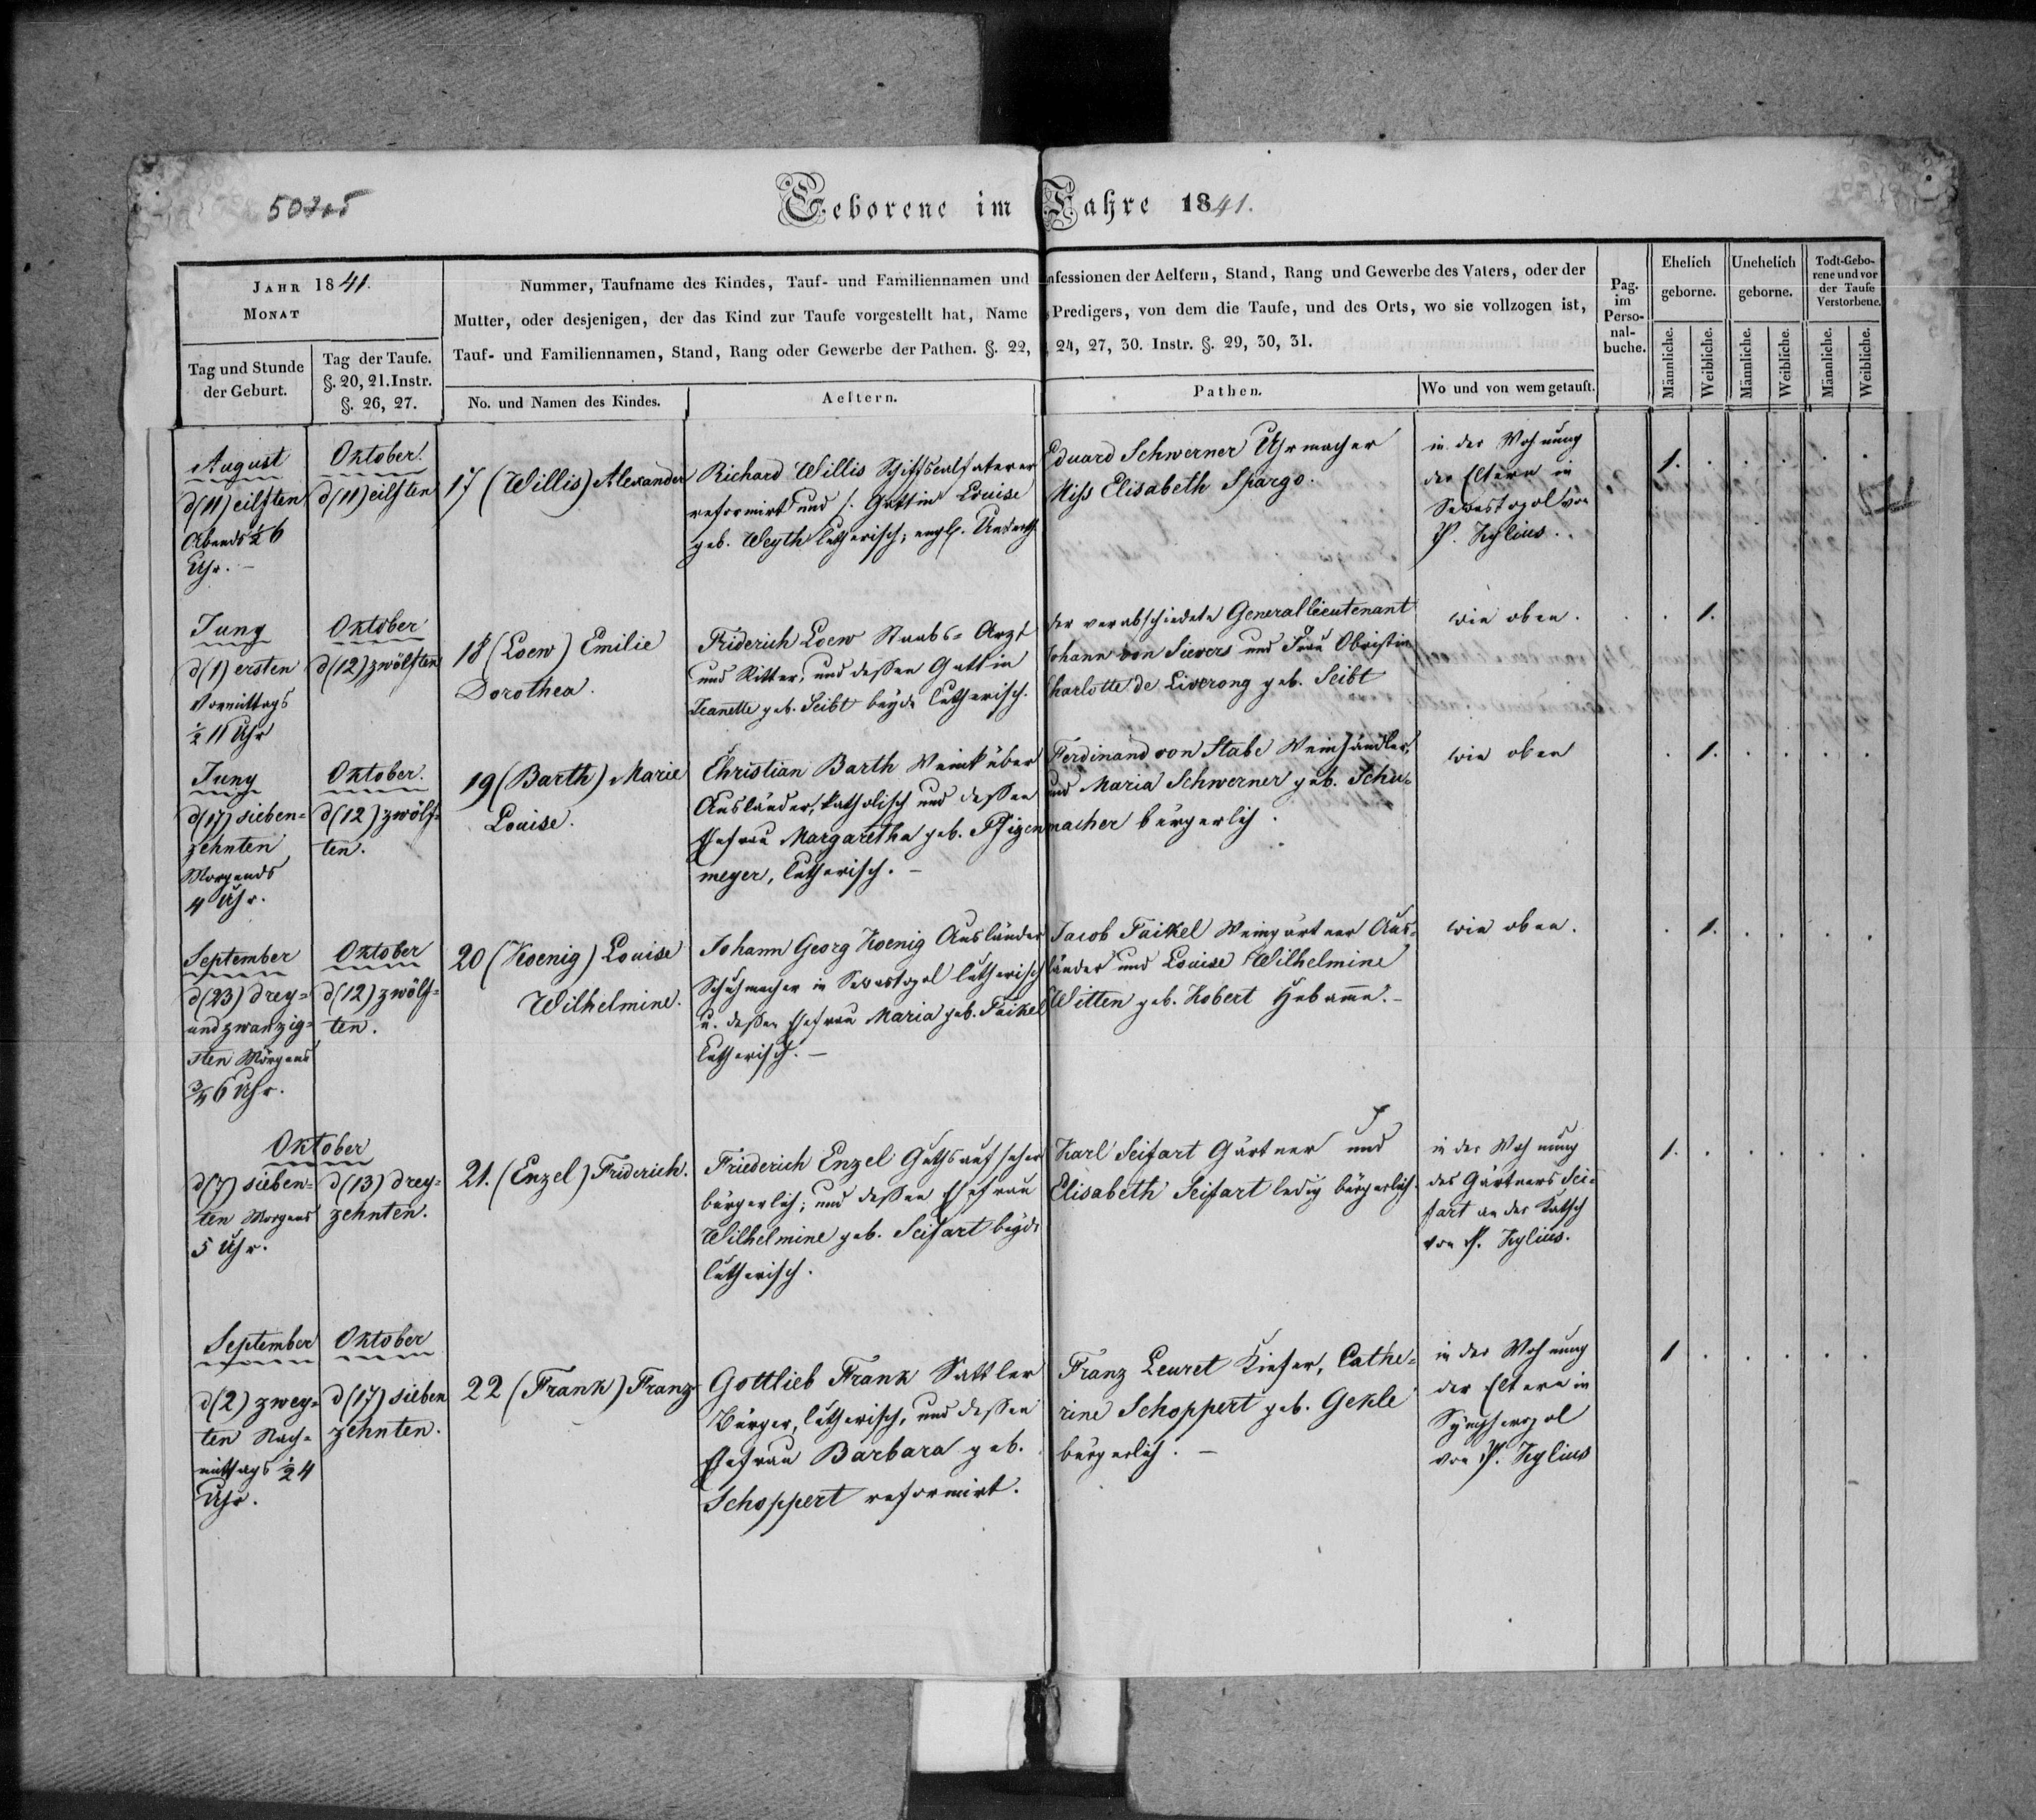 Geborene im Jahre 1841.
JAHR 1841.
MONAT
Tag und Stunde der Geburt.
Tag der Taufe. §. 20, 21. Instr. §. 26, 27.
Nummer, Taufname des Kindes, Tauf- und Familiennamen und nfessionen der Aeltern, Stand, Rang und Gewerbe des Vaters, oder der
Mutter, oder desjenigen, der das Kind zur Taufe vorgestellt hat, Name Predigers, von dem die Taufe, und des Orts, wo sie vollzogen ist,
Tauf- und Familiennamen, Stand, Rang oder Gewerbe der Pathen. §. 22, 24, 27, 30. Instr. §. 29, 30, 31.
No. und Namen des Kindes.
Aeltern.
Pathen.
Wo und von wem getauft.
Pag. im Perso-nal-buche.
Ehelich geborne.
Unehelich geborne.
Todt-Gebo-rene und vor der Taufe Verstorbene.
Männliche.
Weibliche.
Männliche.
Weibliche.
Männliche.
Weibliche.
August
d(11) eilften
Abends ½ 6
Uhr.
Oktober.
d(11) eilften
17 (Willis) Alexander
Richard Willis Schiffscalfaterer
reformirt und s. Gattin Louise
geb. Weyth lutherisch; engl.
Eduard Schwerner Uhrmacher
Miss Elisabeth Spargo.
in der Wohnung
der Eltern in
Sewastopol von
P. Kylius.
1.
Juny
d(1) ersten
Vormittags
½ 11 Uhr
Oktober
d(12) zwölften
18 (Loew) Emilie
Dorothea.
Friderich Loew Staabs-Arzt
und Ritter, und dessen Gattin
Jeanette geb. Seibt beyde lutherisch.
der verabschiedete Generallieutenant
Johann von Sievers und Frau Obristin
Charlotte de Liverong geb. Seibt
wie oben.
1.
Juny
d(17) sieben-
zehnten
Morgends
4 Uhr.
Oktober.
d(12) zwölf-
ten.
19 (Barth) Marie
Louise.
Christian Barth Weinküber
Ausländer, katholisch und dessen
Ehefrau Margaretha geb. Pfizen
meyer, lutherisch. –
Ferdinand von Stabe Weinhändler,
und Maria Schwerner geb. Schu-
macher bürgerlich.
wie oben
1.
September
d(23) drey-
undzwanzig-
sten Morgens
¾ 6 Uhr.
Oktober
d(12) zwölf-
ten.
20 (Koenig) Louise
Wilhelmine.
Johann Georg Koenig Ausländer
Schuhmacher in Sewastopol lutherisch
u. dessen Ehefrau Maria geb. Faikel
lutherisch. –
Jacob Faikel Weingärtner Aus-
länder und Louise Wilhelmine
Witten geb. Kobert Hebamme. –
wie oben.
1.
Oktober
d(7) sieben-
ten Morgens
5 Uhr.
d(13) drey-
zehnten.
21. (Enzel) Friderich.
Friederich Enzel Guthsaufseher
bürgerlich; und dessen Ehefrau
Wilhelmine geb. Seifart beyde
lutherisch.
Karl Seifart Gärtner und
Elisabeth Seifart ledig bürgerlich.
in der Wohnung
des Gärtners Sei-
fart an der Katsch
von P. Kylius.
1.
September
d(2) zwey-
ten Nach-
mittags ½ 4
Uhr.
Oktober
d(17) sieben
zehnten.
22 (Frank) Franz
Gottlieb Frank Sattler
Bürger, lutherisch, und dessen
Ehefrau Barbara geb.
Schoppert reformirt.
Franz Leuret Kiefer, Cathe-
rine Schoppert geb. Gekle
bürgerlich. –
in der Wohnung
der Eltern in
Sympheropol
von P. Kylius
1